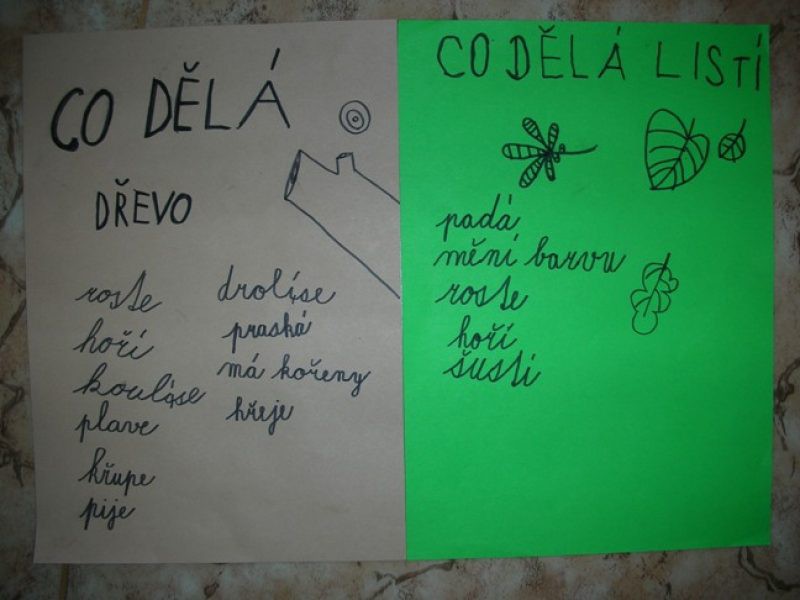 CO DĚLÁ
DŘEVO
roste
hoří
koulí se
plave
křupe
pije
drolí se
praská
má kořeny
hřeje
CO DĚLÁ LISTÍ
padá
mění barvu
roste
hoří
šustí